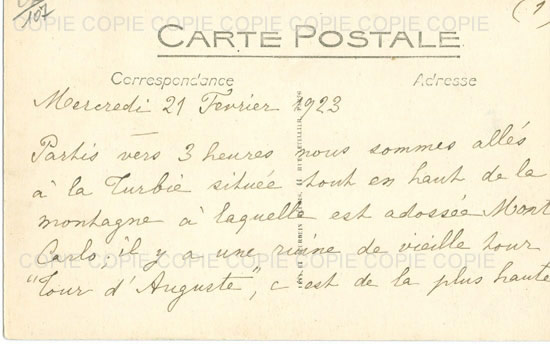 107
(1)
CARTE POSTALE
Correspondance
Adresse
Mercredi 21 Février 1923
Partis vers 3 heures nous sommes allés
à la Turbie située tout en haut de la
montagne à laquelle est adossée Mont
Carlo, il y a une ruine de vieille tour
"Tour d'Auguste", c'est de la plus haute
COPIE COPIE COPIE COPIE COPIE COPIE COPIE